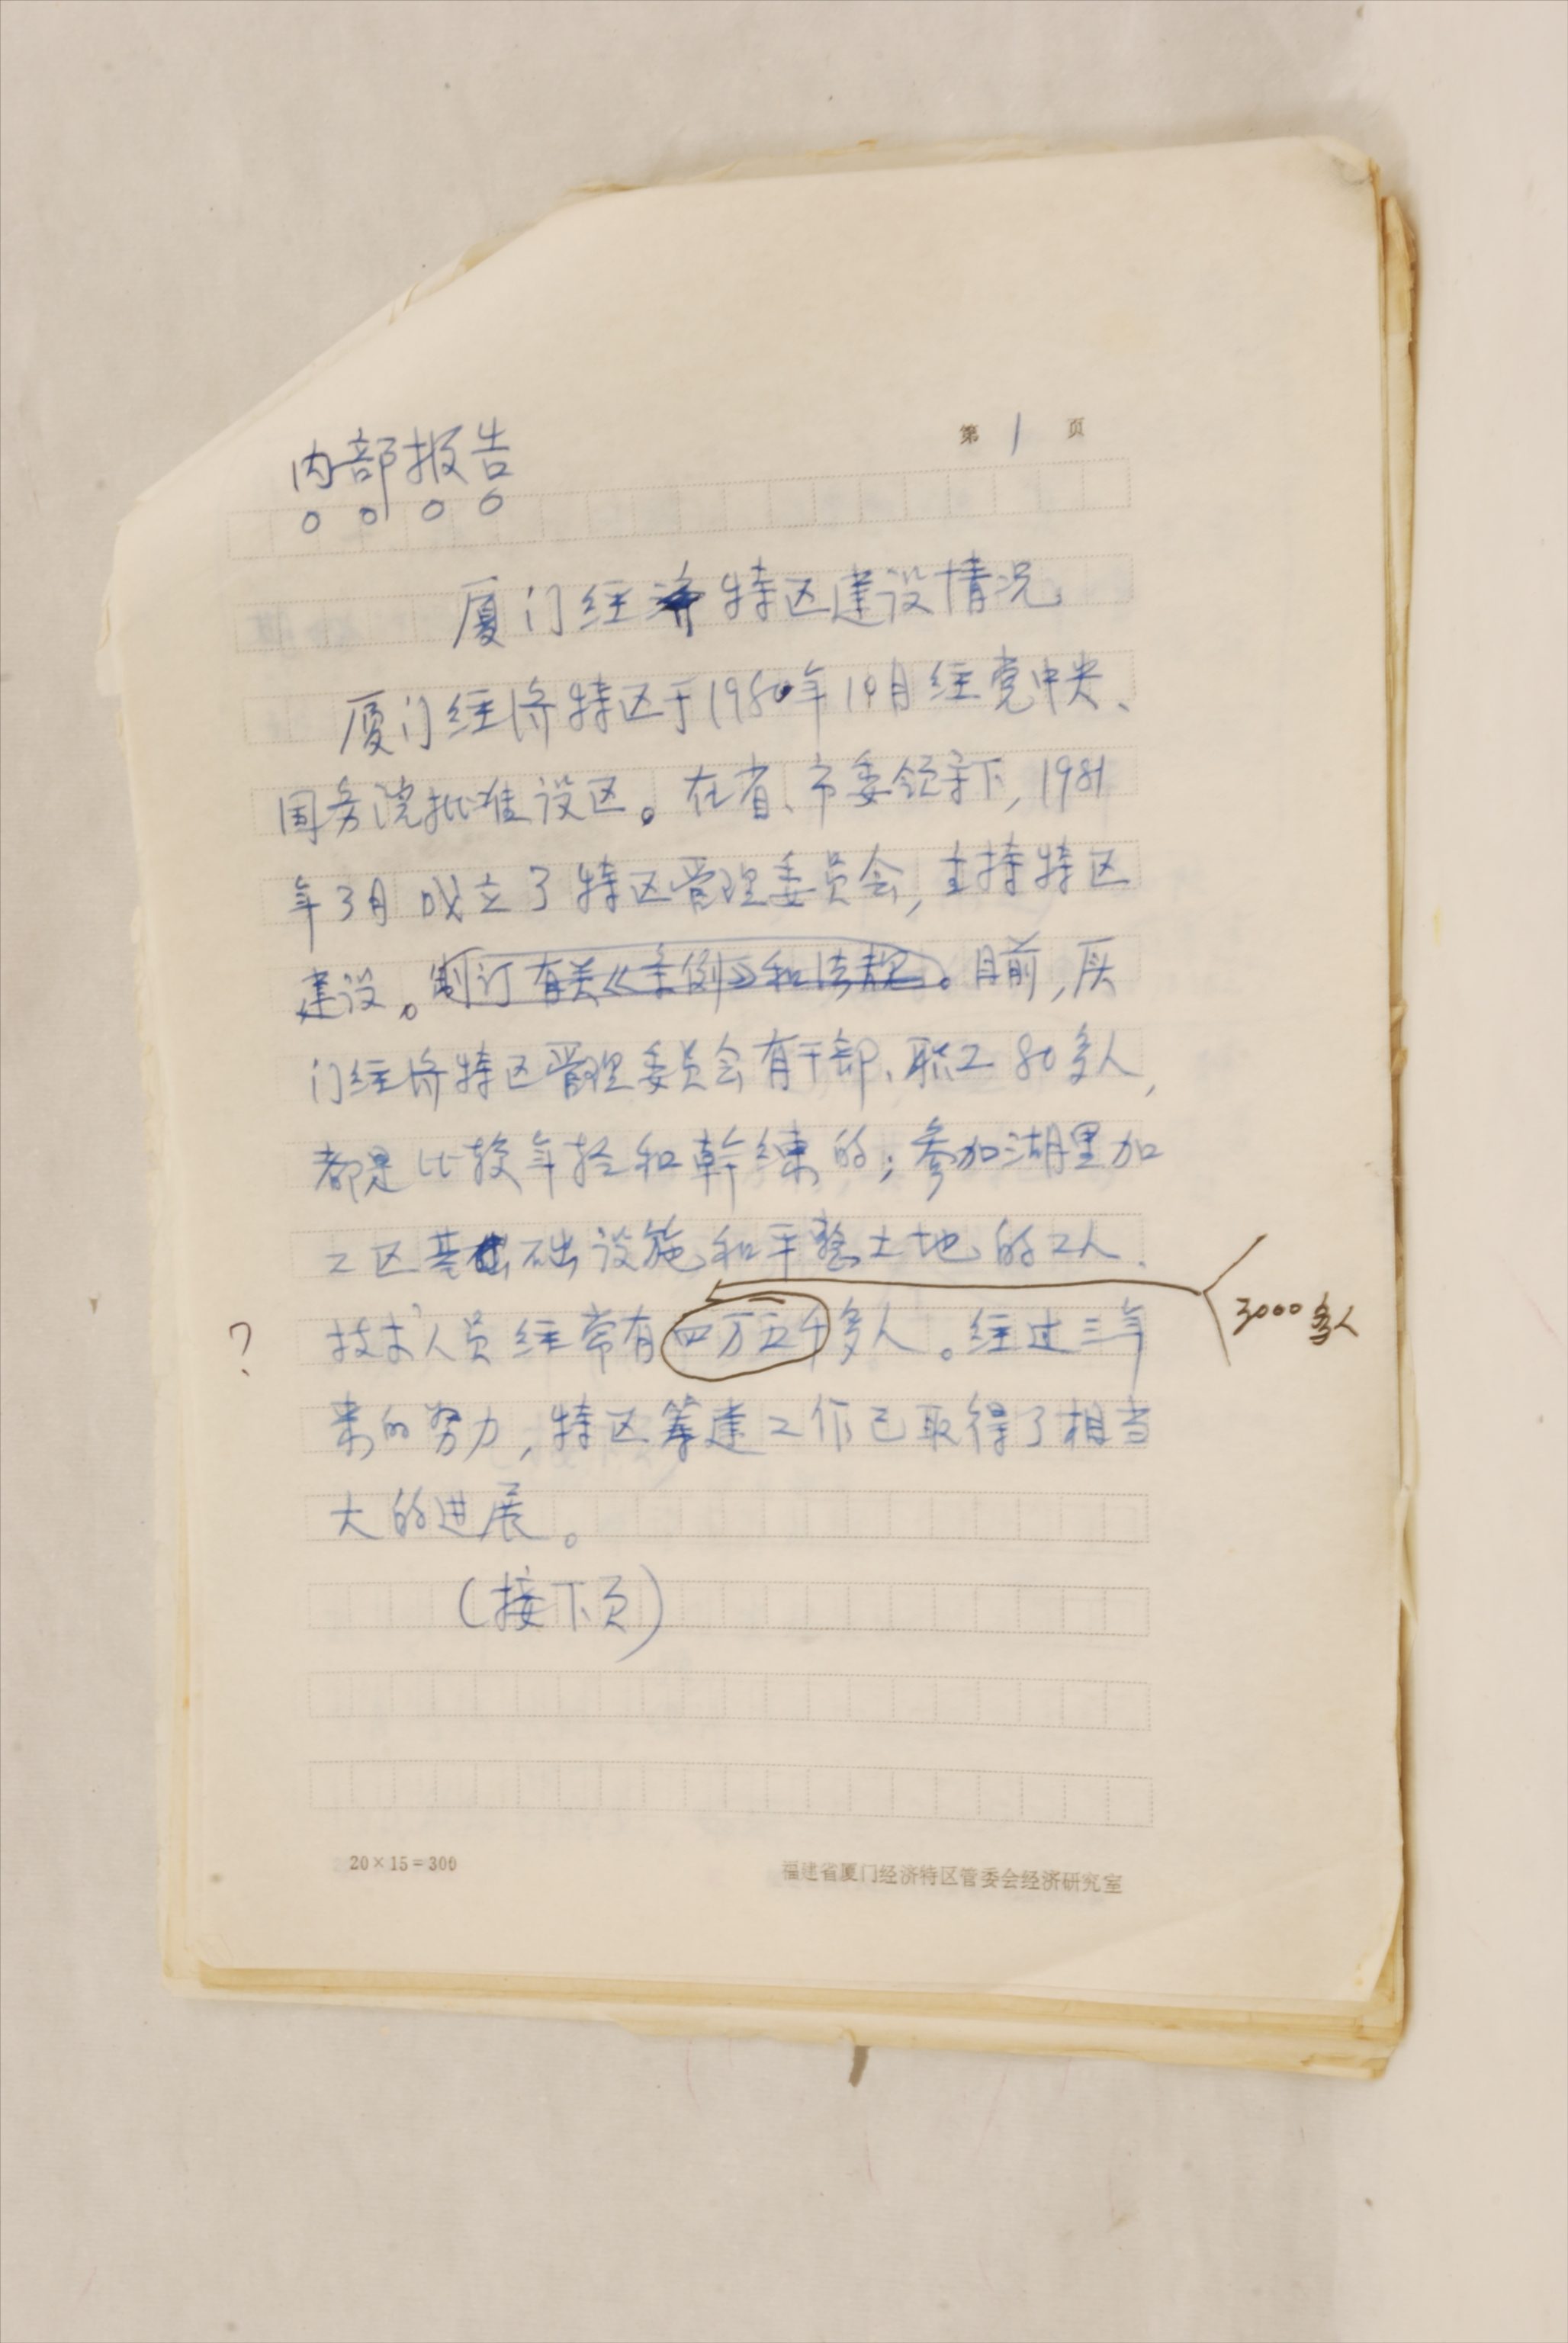 第1页
内部报告
厦门经济特区建设情况
厦门经济特区于1980年10月经党中央、
国务院批准设区。在省、市委领导下,1981
年3月成立了特区管理委员会,主持特区
建设。制订有关《条例》和法规。目前,厦
门经济特区管理委员会有干部、职工80多人,
都是比较年轻和幹练的;参加湖里加
工区基础设施和平整土地的工人、
? 技术人员经常有四万五千多人。经过三年
3000多人
来的努力,特区筹建工作已取得了相当
大的进展。
(接下页)
20×15=300
福建省厦门经济特区管委会经济研究室